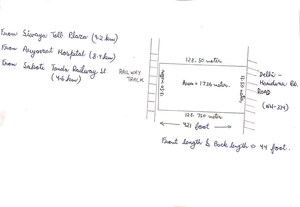 From Siwaya Toll Plaza (9.2 km)
From Aryavrat Hospital (8.9 km)
From Sakoti Tanda Railway St
(4.6 km)
128.50 meter.
RAILWAY
TRACK
13.50 meter
Area = 1736 meter.
13.50 meter
Delhi -
Haridwar Rd.
ROAD
(NH-334)
128.720 meter.
421 foot
Front length & Back length => 44 foot.